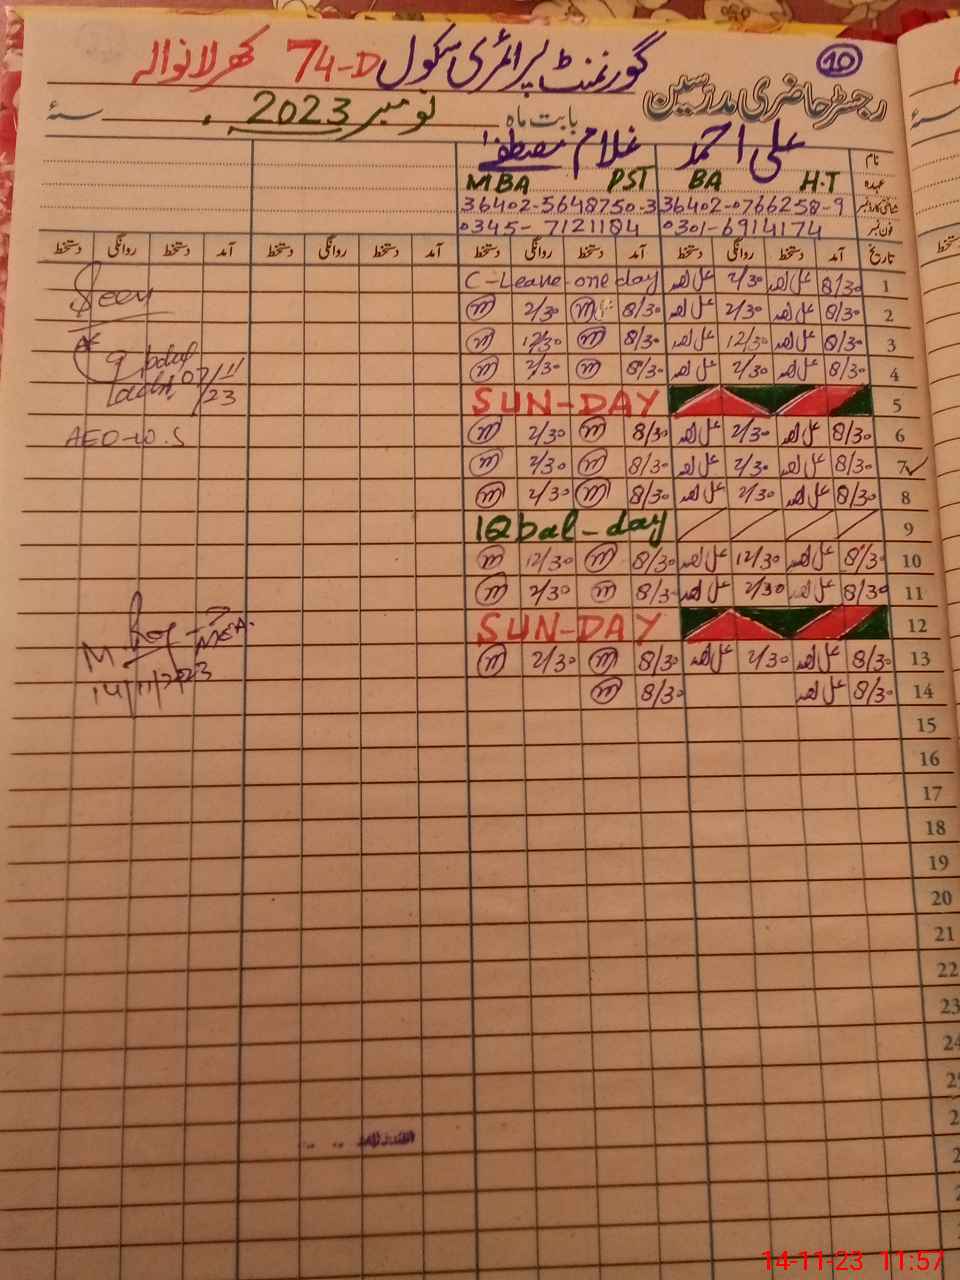 10
گورنمنٹ پرائمری سکول 74-D کھرلانوالہ
رجسٹر حاضری مدرسین
بابت ماہ نومبر 2023 سنۂ
نام علی احمد غلام مصطفےٰ
عہدہ H.T BA PST MBA
شناختی کارڈ نمبر 36402-0766258-9 36402-5648750-3
فون نمبر 0301-6914174 0345-7121184
تاریخ آمد دستخط روانگی دستخط آمد دستخط روانگی دستخط آمد دستخط روانگی دستخط آمد دستخط روانگی دستخط
1 8/30 علی احمد 2/30 علی احمد C-Leave one day
2 8/30 علی احمد 2/30 علی احمد 8/30 m 2/30 m
3 8/30 علی احمد 12/30 علی احمد 8/30 m 12/30 m
4 8/30 علی احمد 2/30 علی احمد 8/30 m 2/30 m
5 SUN-DAY
6 8/30 علی احمد 2/30 علی احمد 8/30 m 2/30 m
7 8/30 علی احمد 2/30 علی احمد 8/30 m 2/30 m
8 8/30 علی احمد 2/30 علی احمد 8/30 m 2/30 m
9 IQbal-day
10 8/30 علی احمد 12/30 علی احمد 8/30 m 12/30 m
11 8/30 علی احمد 2/30 علی احمد 8/30 m 2/30 m
12 SUN-DAY
13 8/30 علی احمد 2/30 علی احمد 8/30 m 2/30 m
14 8/30 علی احمد 8/30 m
15
16
17
18
19
20
21
22
23
24
Seen
07/11/23
AEO-W.S
M.
MEA.
14/11/2023
14-11-23 11:57